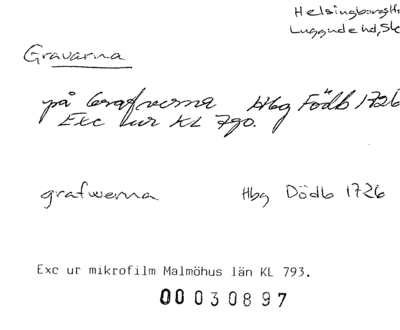 Helsingborgs
Luggude hd, Sk
Gravarna
på Grafwerna Hbg Födb 1726
Exc ur KL 790.
grafwerna Hbg Dödb 1726
Exc ur mikrofilm Malmöhus län KL 793.
00030897